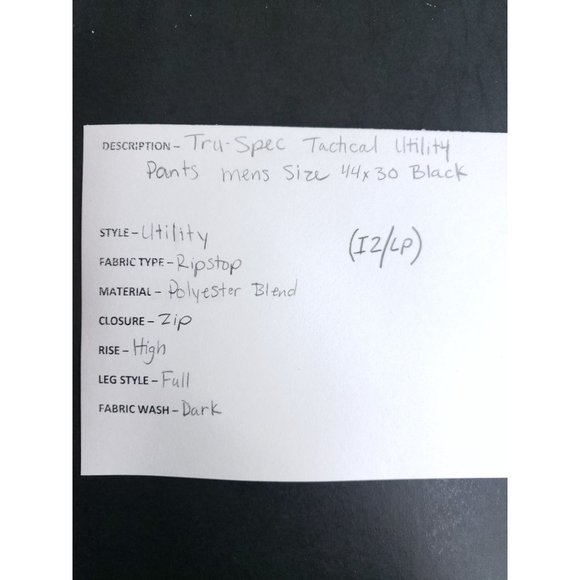 DESCRIPTION – Tru-Spec Tactical Utility
Pants mens Size 44x30 Black
STYLE – Utility
(I2/LP)
FABRIC TYPE – Ripstop
MATERIAL – Polyester Blend
CLOSURE – Zip
RISE – High
LEG STYLE – Full
FABRIC WASH – Dark